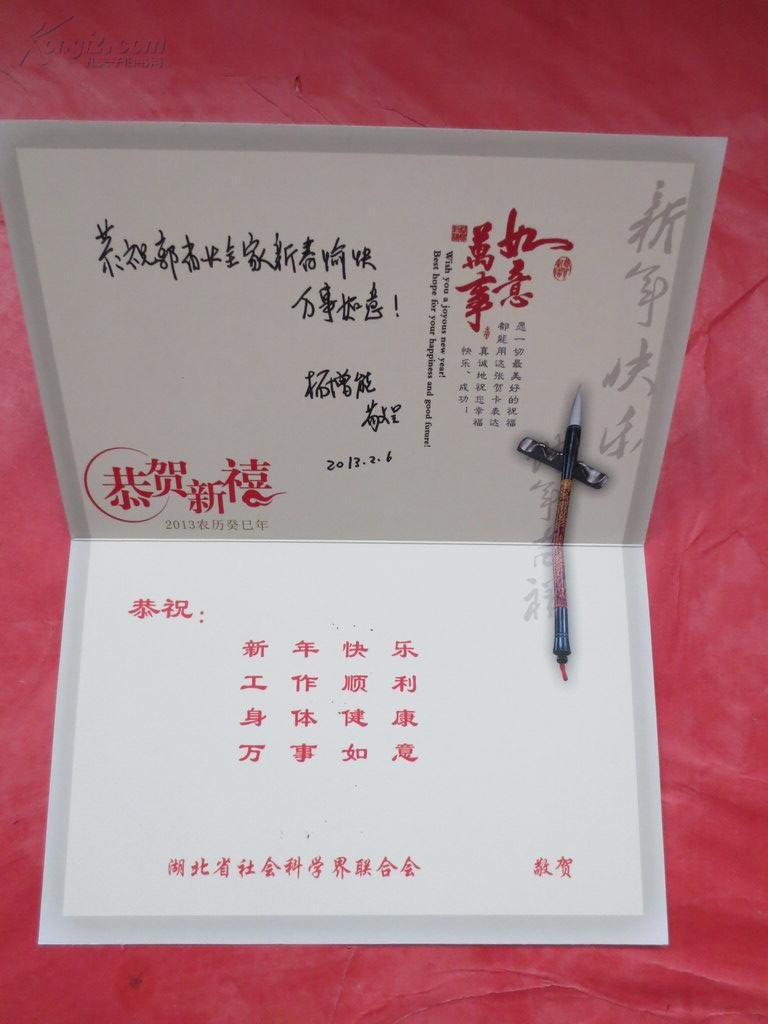 Kongfz.com
恭祝郭省业全家新春愉快
万事如意！
杨增能
敬呈
2013.2.6
恭贺新禧
2013农历癸巳年
如意
萬事
愿一切最美好的祝福
都能用这张贺卡表达
真诚地祝您幸福
快乐、成功！
Wish you a joyous new year!
Best hope for your happiness and good future!
新年快乐
恭祝：
新年快乐
工作顺利
身体健康
万事如意
湖北省社会科学界联合会 敬贺